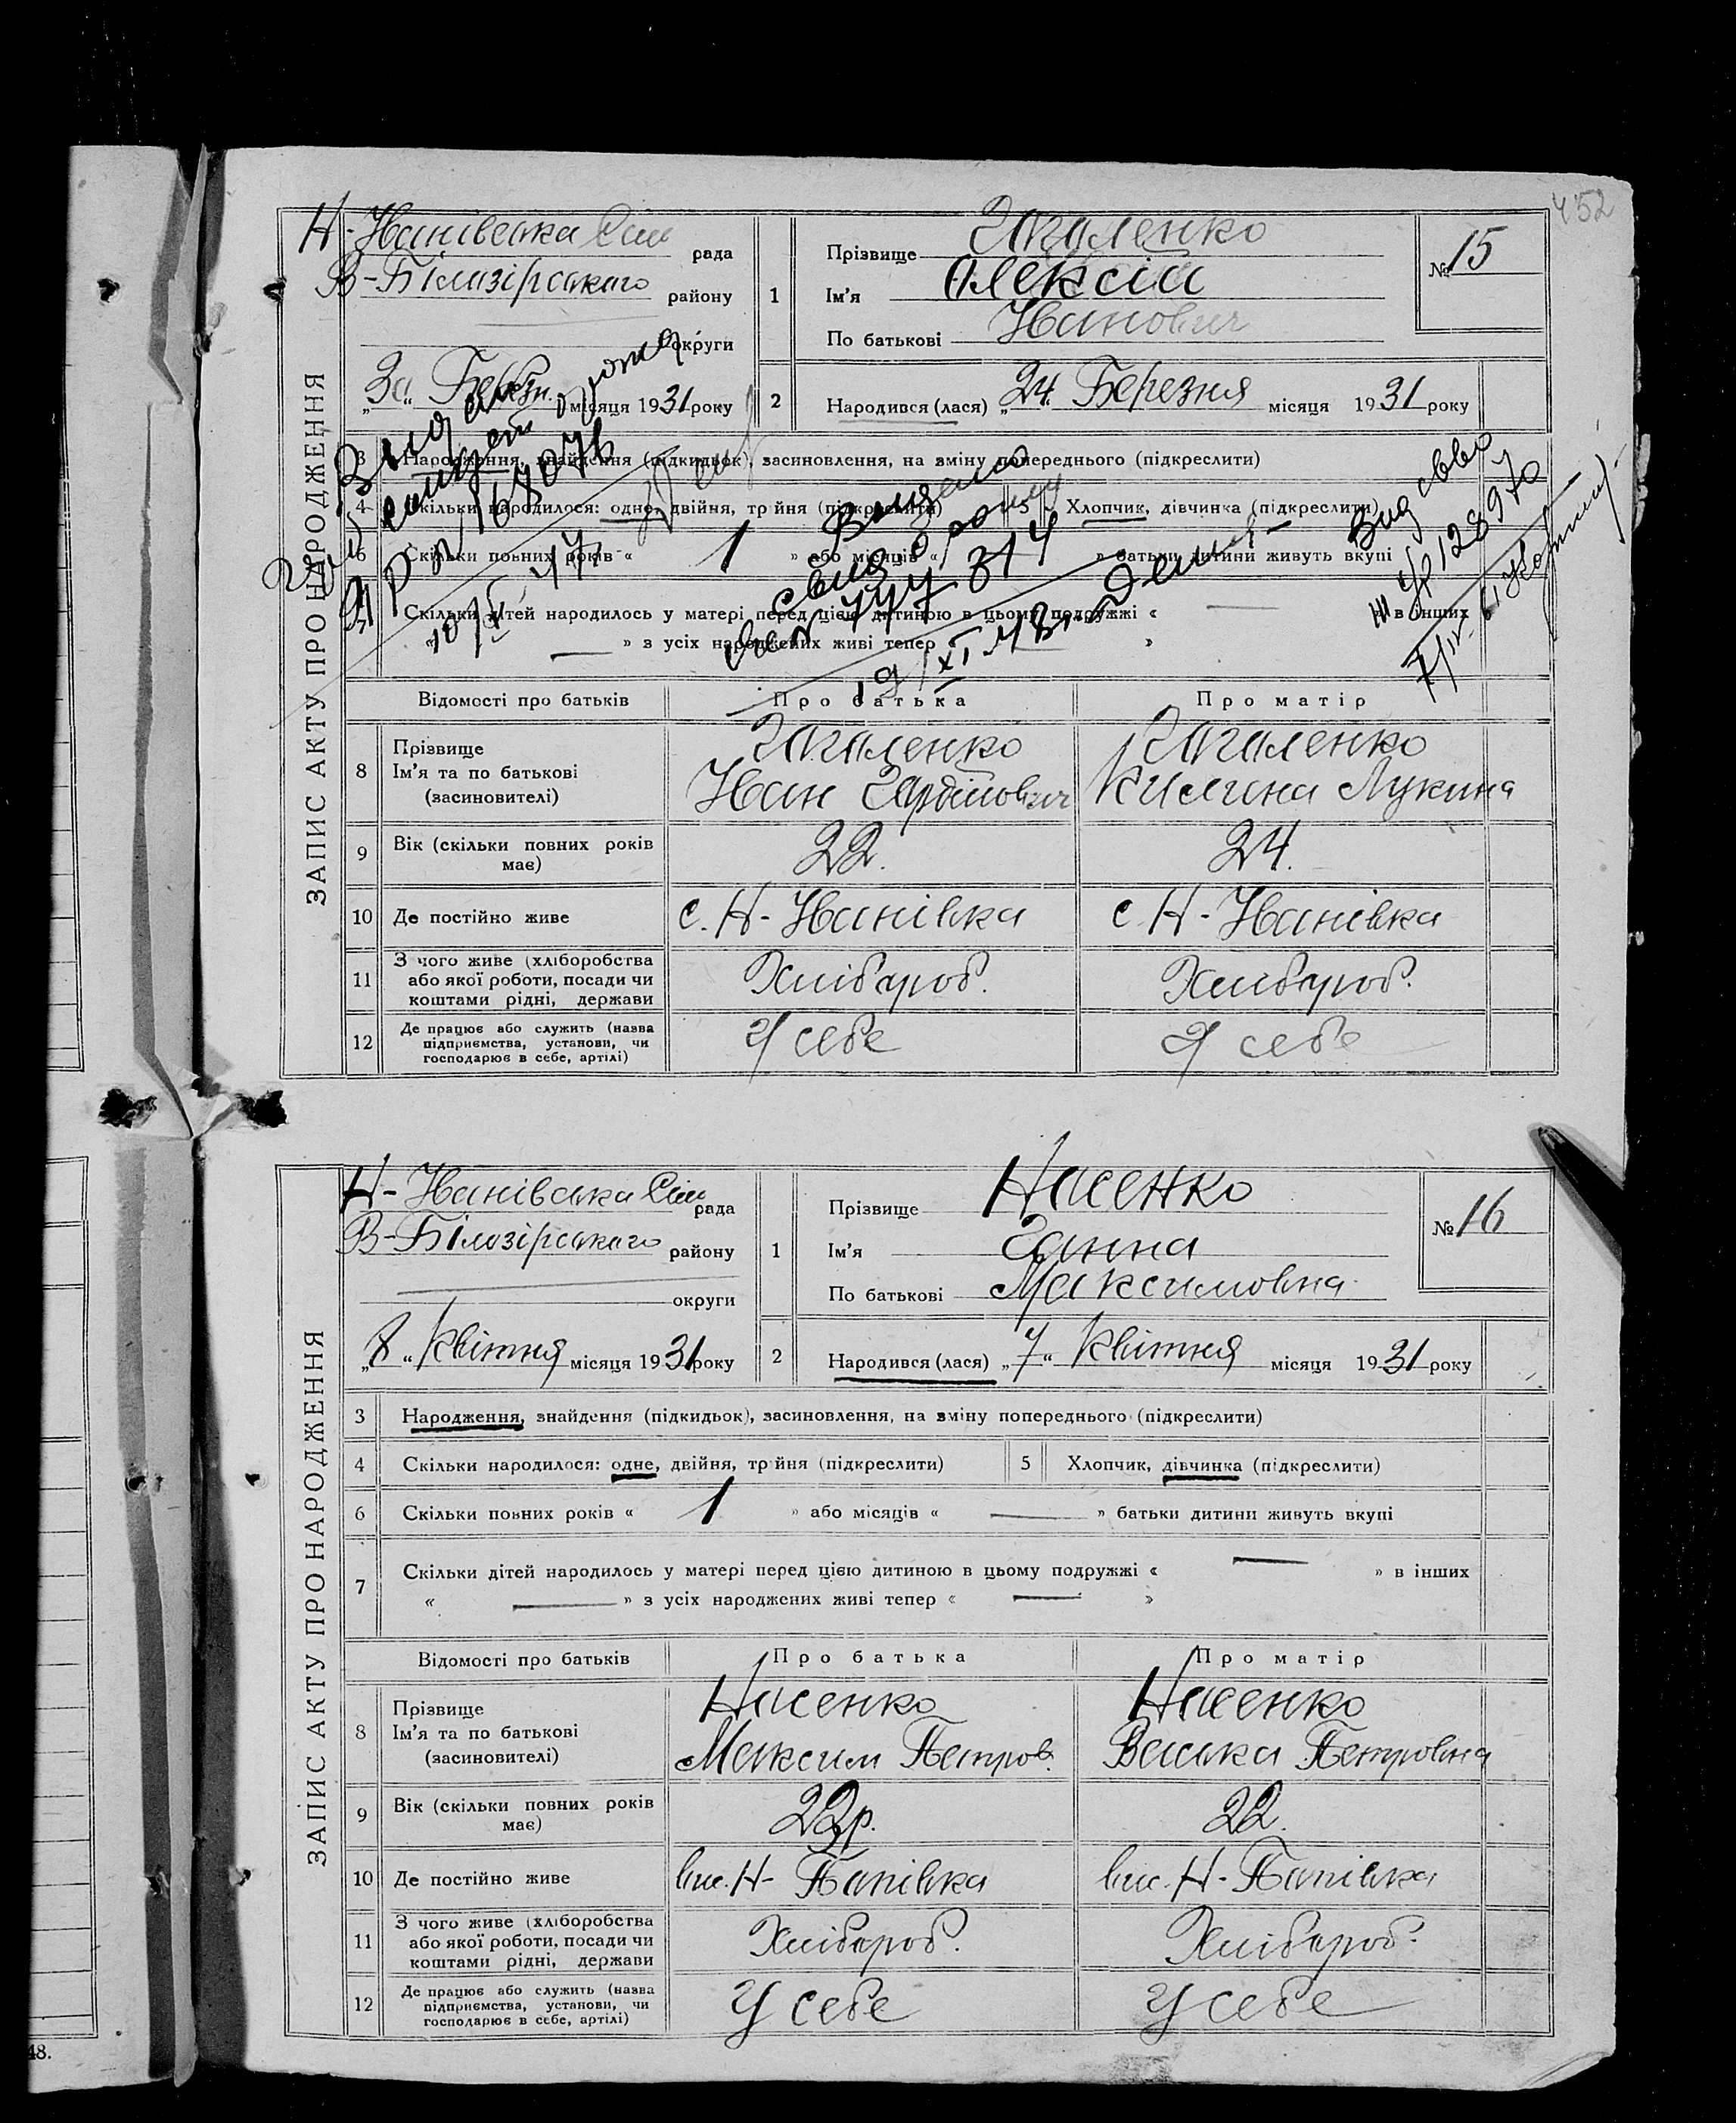 452
ЗАПИС АКТУ ПРО НАРОДЖЕННЯ
Н-Іванівська Сіль рада
В-Білозірського району
округи
„30“ Березн. місяця 1931 року
1
Прізвище
Ім'я Олексій
По батькові Іванович
№ 15
2 Народився (лася) „24“ Березня місяця 1931 року
3 Народження, знайдення (підкидьок), засиновлення, на зміну попереднього (підкреслити)
4 Скільки народилося: одне, двійня, трійня (підкреслити)
5 Хлопчик, дівчинка (підкреслити)
6 Скільки повних років « 1 » або місяців « » батьки дитини живуть вкупі
7 Скільки дітей народилось у матері перед цією дитиною в цьому подружжі « — » в інших
« — » з усіх народжених живі тепер « — »
Відомості про батьків Про батька Про матір
8 Прізвище
Ім'я та по батькові Іван Килина Лукина
(засиновителі)
9 Вік (скільки повних років має) 22. 24.
10 Де постійно живе с. Н-Іванівка с. Н-Іванівка
11 З чого живе (хліборобства або якої роботи, посади чи коштами рідні, держави Хлібороб. Хлібороб.
12 Де працює або служить (назва підприємства, установи, чи господарює в себе, артілі) У себе У себе
ЗАПИС АКТУ ПРО НАРОДЖЕННЯ
Н-Іванівська Сіль рада
В-Білозірського району
округи
„8“ Квітня місяця 1931 року
1
Прізвище Носенко
Ім'я Ганна
По батькові Максимовна
№ 16
2 Народився (лася) „7“ Квітня місяця 1931 року
3 Народження, знайдення (підкидьок), засиновлення, на зміну попереднього (підкреслити)
4 Скільки народилося: одне, двійня, трійня (підкреслити)
5 Хлопчик, дівчинка (підкреслити)
6 Скільки повних років « 1 » або місяців « — » батьки дитини живуть вкупі
7 Скільки дітей народилось у матері перед цією дитиною в цьому подружжі « — » в інших
« — » з усіх народжених живі тепер « — »
Відомості про батьків Про батька Про матір
8 Прізвище Носенко Носенко
Ім'я та по батькові Максим Петров. Васька Петровна
(засиновителі)
9 Вік (скільки повних років має) 22р. 22.
10 Де постійно живе вис. Н-Попівка вис. Н-Попівка
11 З чого живе (хліборобства або якої роботи, посади чи коштами рідні, держави Хлібороб. Хлібороб.
12 Де працює або служить (назва підприємства, установи, чи господарює в себе, артілі) У себе У себе
48.